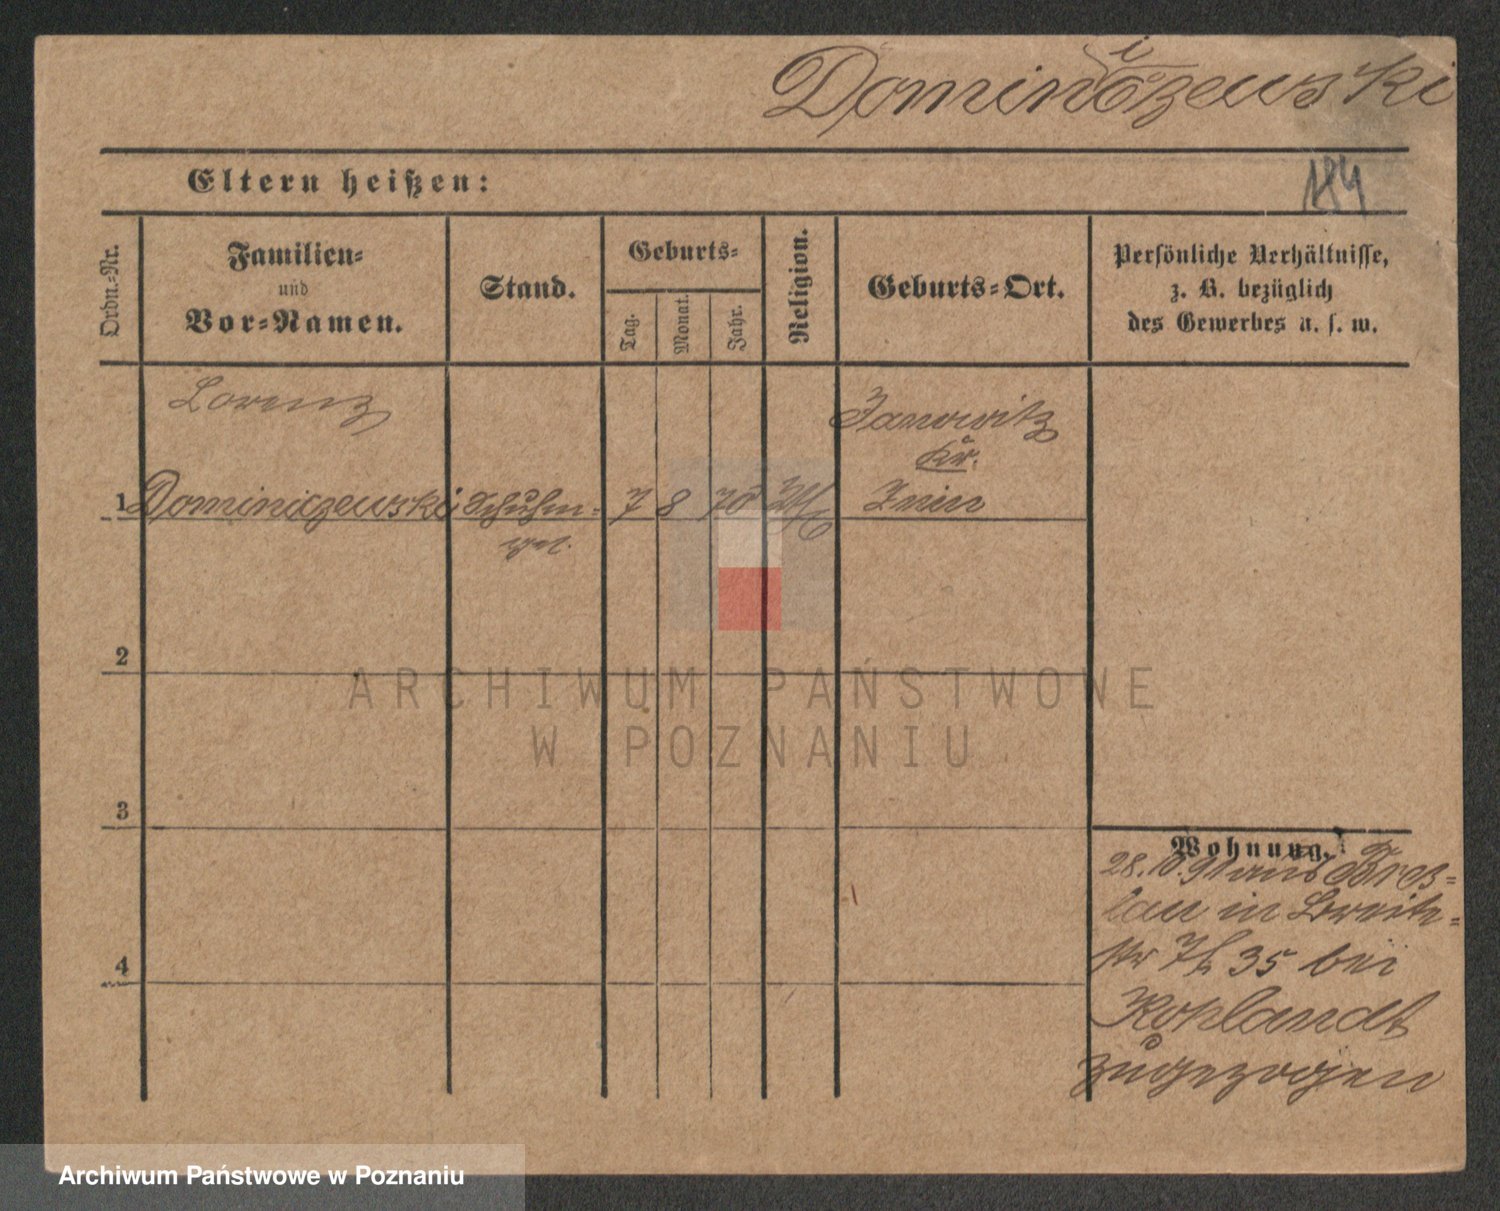 Dominiczewski
Eltern heißen:
184
Ordn.-Nr.
Familien-
und
Vor-Namen.
Stand.
Geburts-
Tag.
Monat.
Jahr.
Religion.
Geburts-Ort.
Persönliche Verhältnisse,
z. B. bezüglich
des Gewerbes u. s. w.
Lorenz
Janowitz
Kr.
1 Dominiczewski Schuhm- 7 8 70 Znin
ges.
2
ARCHIWUM PAŃSTWOWE
W POZNANIU
3
4
Wohnung.
28.10.91 aus Bres-
lau in Breite-
str 35 bei
Kohlandt
zugezogen
Archiwum Państwowe w Poznaniu